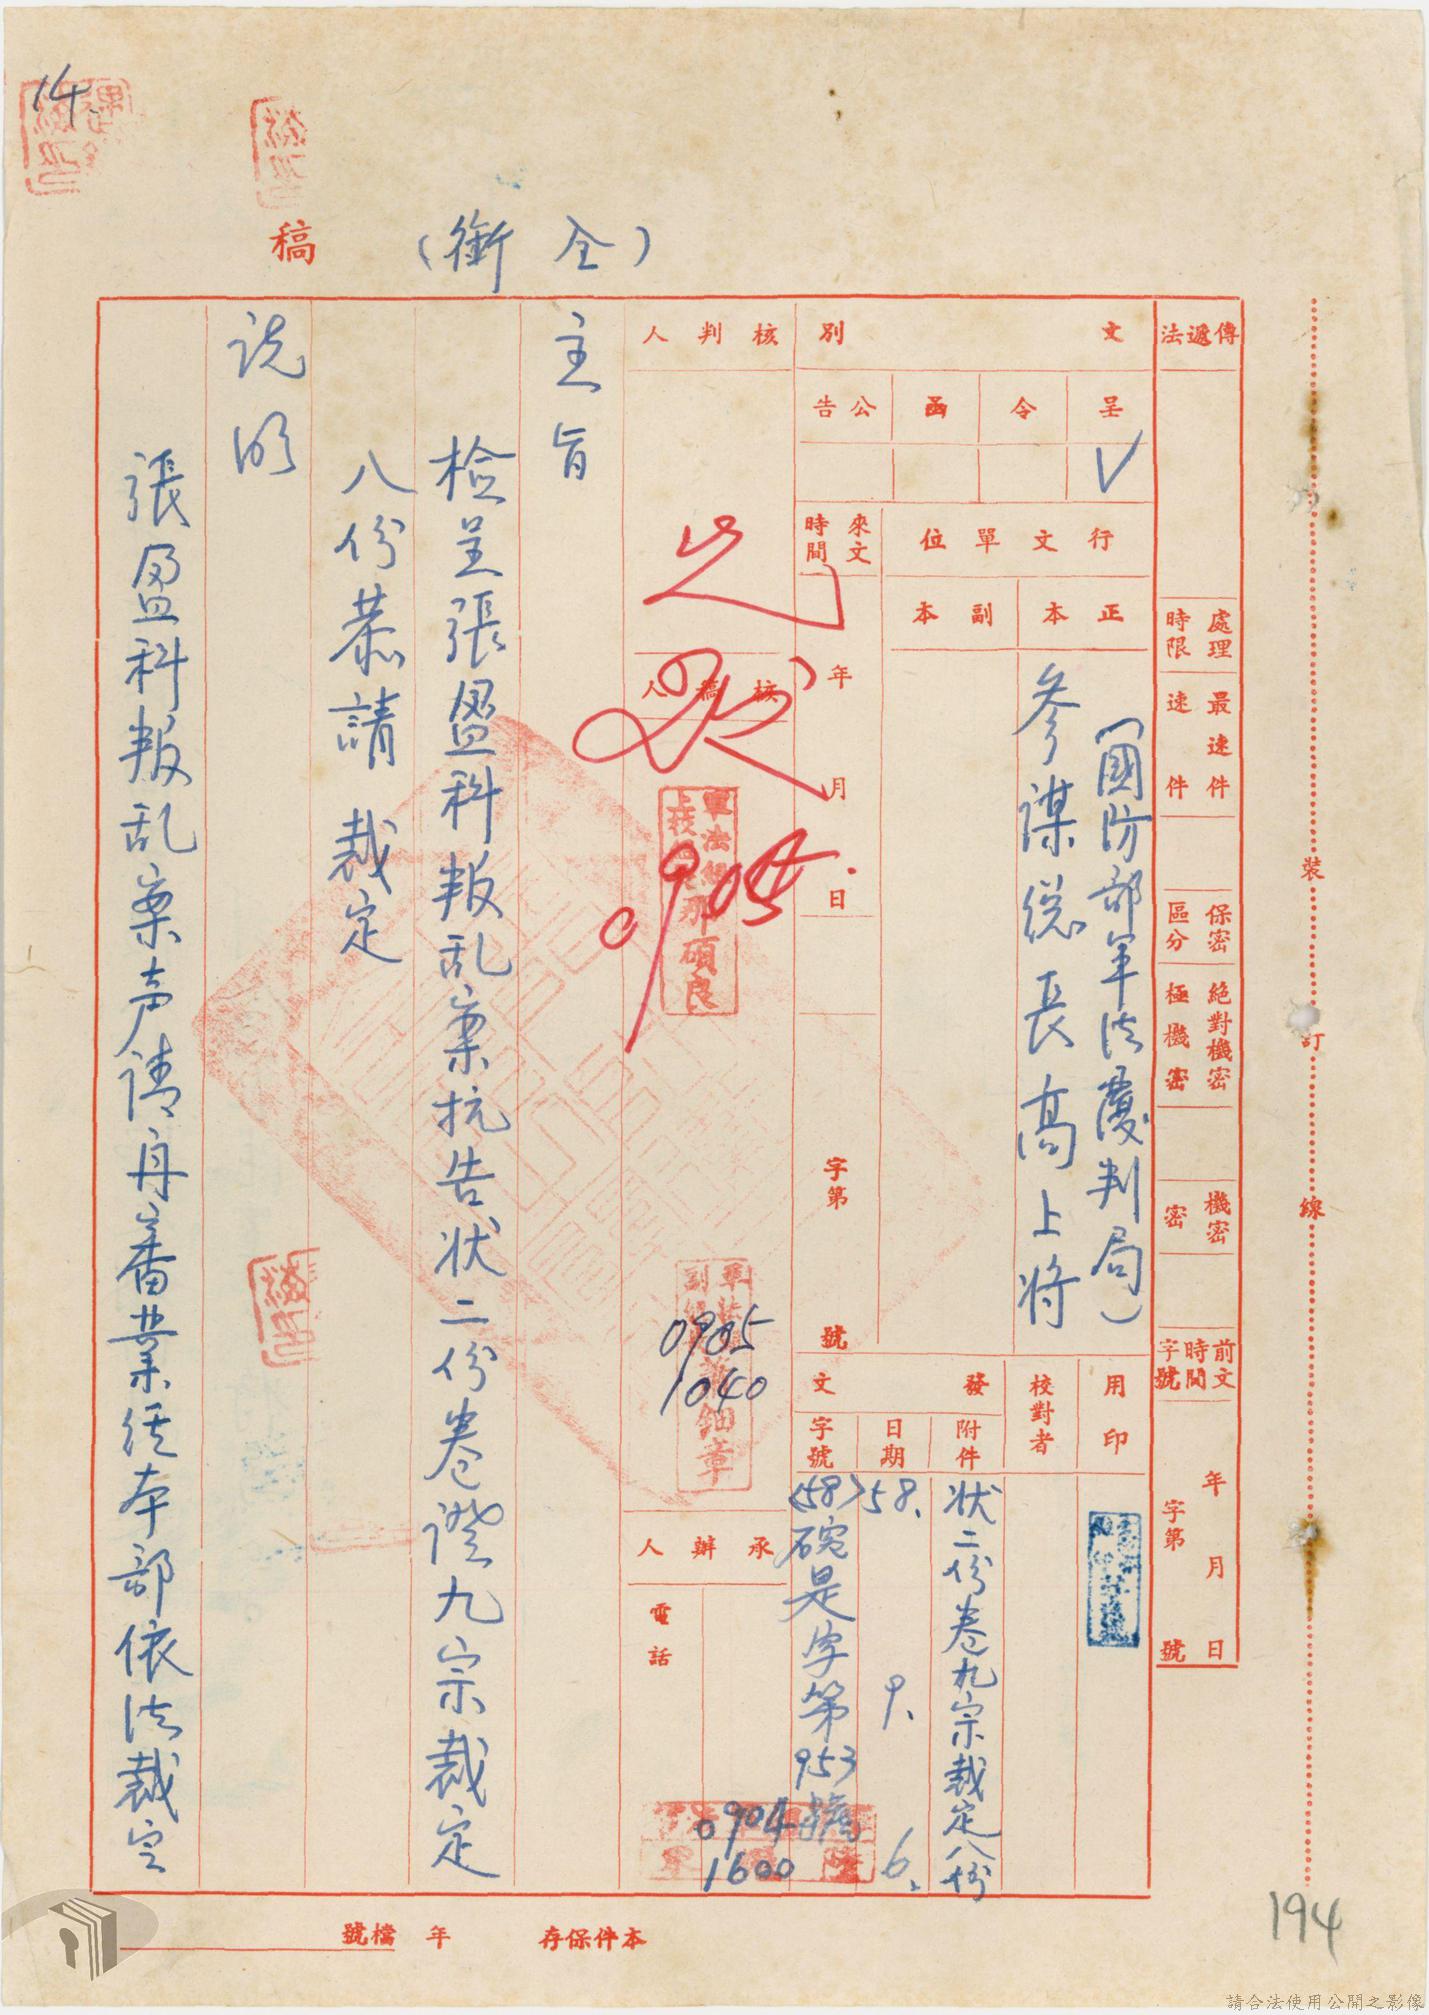 14.
(全銜)
稿
傳遞法
處理時限
最速件
速件
保密區分
絕對機密
極機密
機密
密
前文時間字號
年月日
字第號
文別
呈
令
函
公告
✓
行文單位
正本
副本
(國防部軍法覆判局)
參謀總長高上將
來文時間
年月日
字第號
用印
校對者
發文
附件
狀二份卷九宗裁定八份
日期
58.9.6.
字號
(58)碗是字第953
核判人
核稿人
0905
0905
1040
承辦人
電話
0904
1600
主旨
檢呈張盈科叛乱案抗告狀二份卷證九宗裁定
八份恭請 裁定
說明
張盈科叛乱案声請再審業經本部依法裁定
裝
訂
線
本件保存 年
檔號
194
請合法使用公開之影像